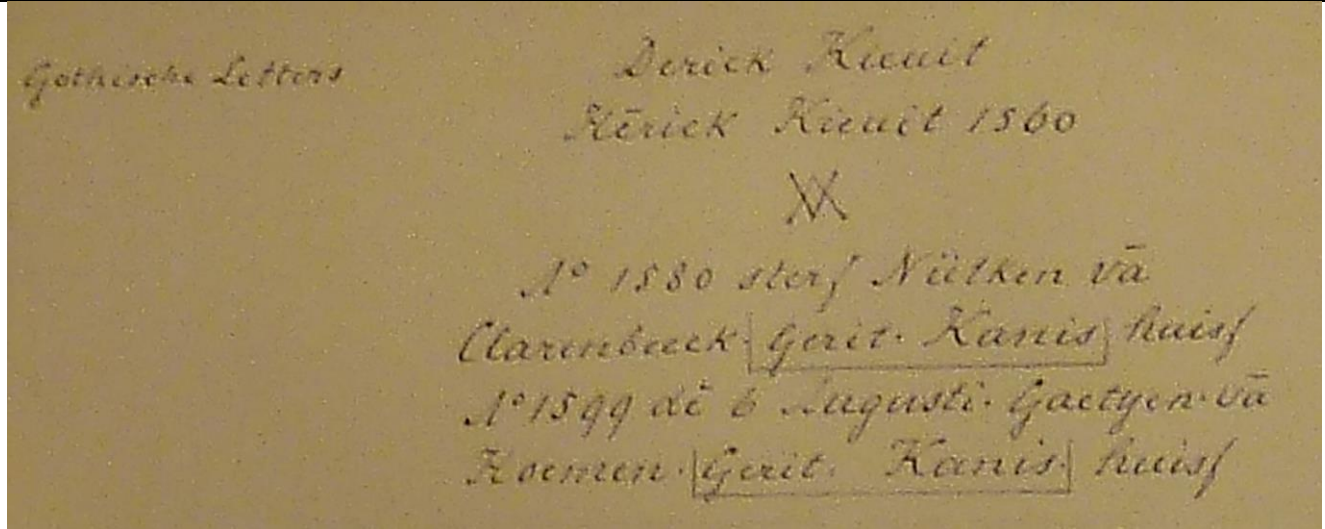 Gothische Letters
Derick Kieuit
Hērick Kieuit 1560
Aº 1580 sterf Nülken vā
Clarenbeeck. Gerit. Kanis huisf
Aº 1599 dē 6 Augusti. Goetgen. vā
Koemen. Gerit. Kanis. huisf